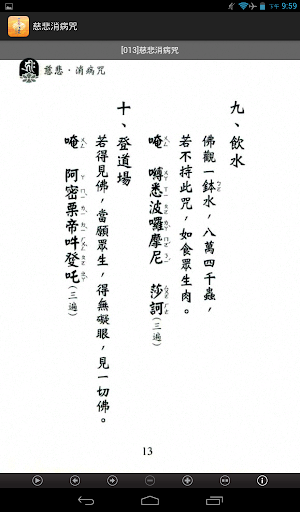 下午 9:59
慈悲消病咒
[013]慈悲消病咒
慈悲·消病咒
九、飲水
佛觀一鉢水，八萬四千蟲，
若不持此咒，如食眾生肉。
唵　嚩悉波囉摩尼　莎訶（三遍）
十、登道場
若得見佛，當願眾生，得無礙眼，見一切佛。
唵　阿密栗帝吽登吒（三遍）
13